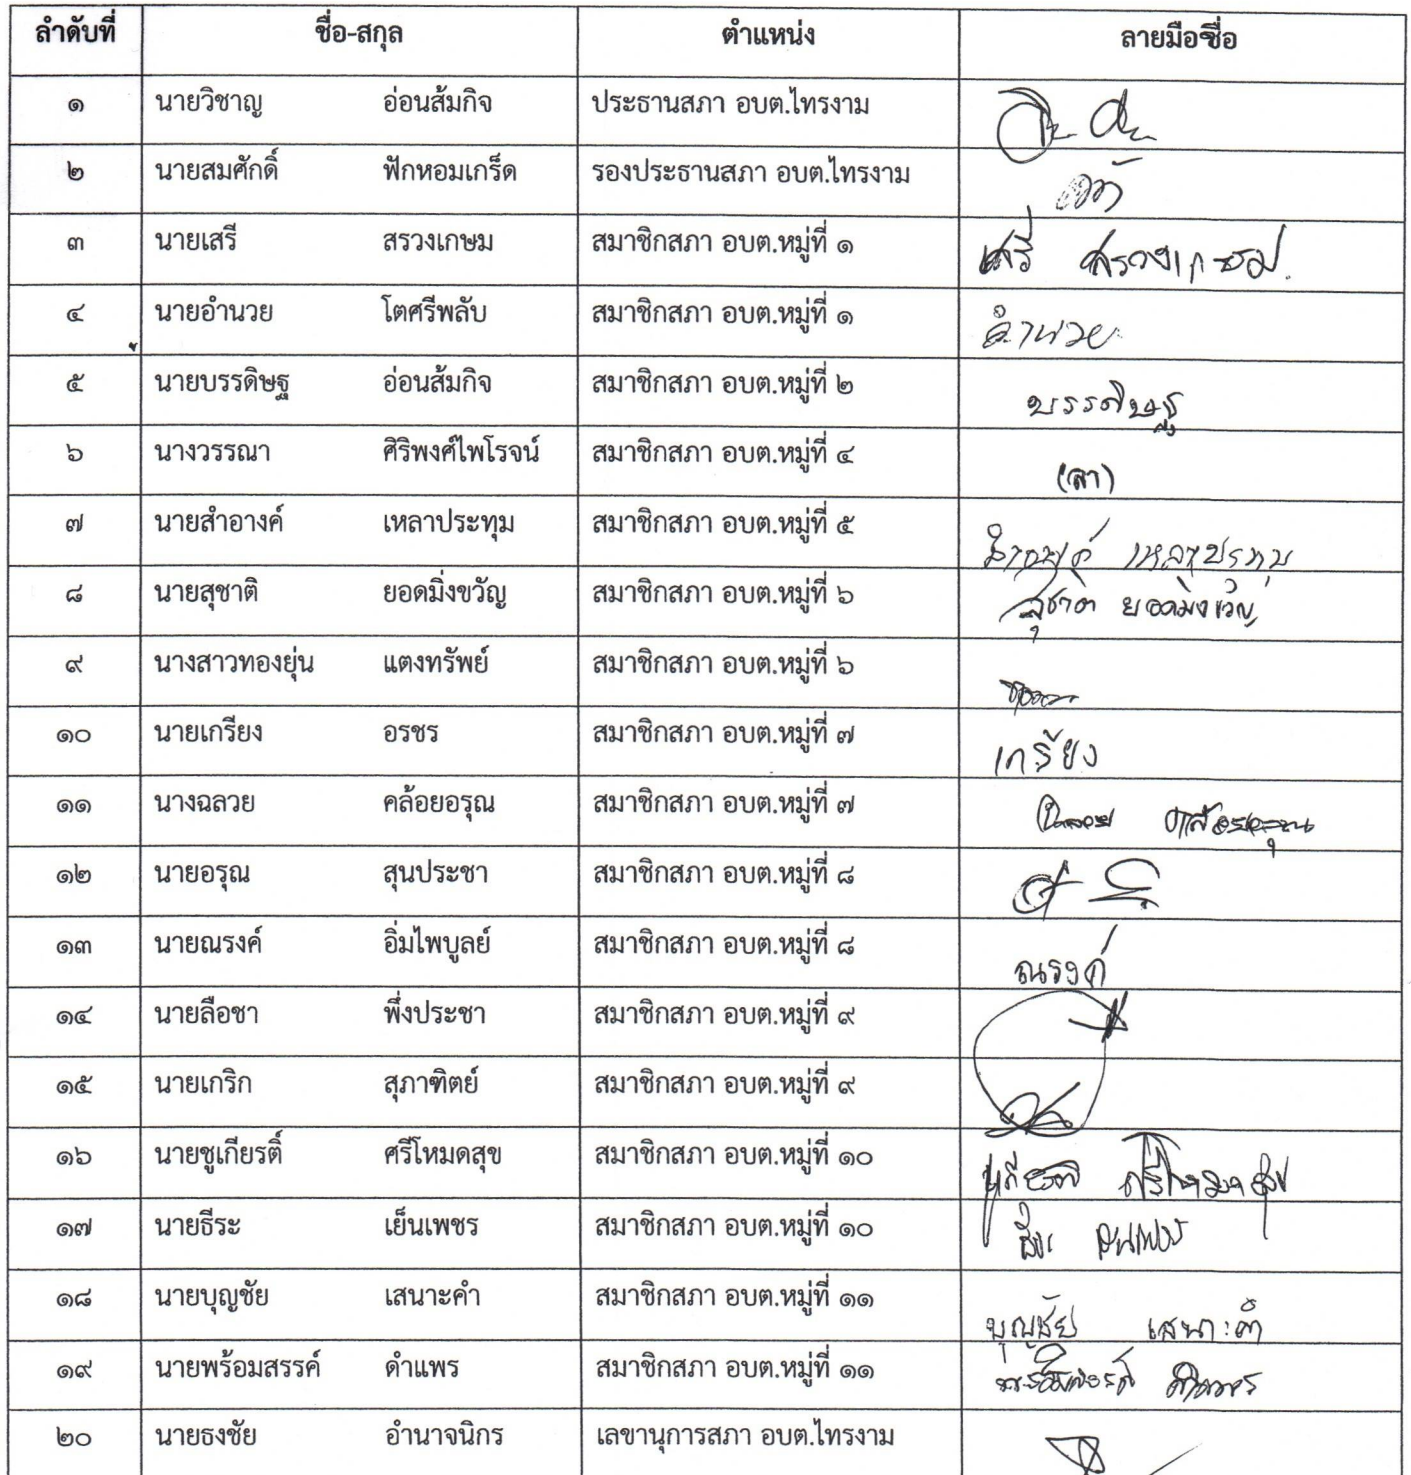 ลำดับที่ ชื่อ-สกุล ตำแหน่ง ลายมือชื่อ
๑ นายวิชาญ อ่อนส้มกิจ ประธานสภา อบต.ไทรงาม
๒ นายสมศักดิ์ ฟักหอมเกร็ด รองประธานสภา อบต.ไทรงาม
๓ นายเสรี สรวงเกษม สมาชิกสภา อบต.หมู่ที่ ๑ เสรี สรวงเกษม
๔ นายอำนวย โตศรีพลับ สมาชิกสภา อบต.หมู่ที่ ๑ อำนวย
๕ นายบรรดิษฐ อ่อนส้มกิจ สมาชิกสภา อบต.หมู่ที่ ๒ บรรดิษฐ
๖ นางวรรณา ศิริพงศ์ไพโรจน์ สมาชิกสภา อบต.หมู่ที่ ๔ (ลา)
๗ นายสำอางค์ เหลาประทุม สมาชิกสภา อบต.หมู่ที่ ๕ สำอางค์ เหลาประทุม
๘ นายสุชาติ ยอดมิ่งขวัญ สมาชิกสภา อบต.หมู่ที่ ๖ สุชาติ ยอดมิ่งขวัญ
๙ นางสาวทองยุ่น แตงทรัพย์ สมาชิกสภา อบต.หมู่ที่ ๖
๑๐ นายเกรียง อรชร สมาชิกสภา อบต.หมู่ที่ ๗ เกรียง
๑๑ นางฉลวย คล้อยอรุณ สมาชิกสภา อบต.หมู่ที่ ๗ ฉลวย คล้อยอรุณ
๑๒ นายอรุณ สุนประชา สมาชิกสภา อบต.หมู่ที่ ๘
๑๓ นายณรงค์ อิ่มไพบูลย์ สมาชิกสภา อบต.หมู่ที่ ๘ ณรงค์
๑๔ นายลือชา พึ่งประชา สมาชิกสภา อบต.หมู่ที่ ๙
๑๕ นายเกริก สุภาฑิตย์ สมาชิกสภา อบต.หมู่ที่ ๙
๑๖ นายชูเกียรติ์ ศรีโหมดสุข สมาชิกสภา อบต.หมู่ที่ ๑๐
๑๗ นายธีระ เย็นเพชร สมาชิกสภา อบต.หมู่ที่ ๑๐
๑๘ นายบุญชัย เสนาะคำ สมาชิกสภา อบต.หมู่ที่ ๑๑ บุญชัย เสนาะคำ
๑๙ นายพร้อมสรรค์ ดำแพร สมาชิกสภา อบต.หมู่ที่ ๑๑
๒๐ นายธงชัย อำนาจนิกร เลขานุการสภา อบต.ไทรงาม